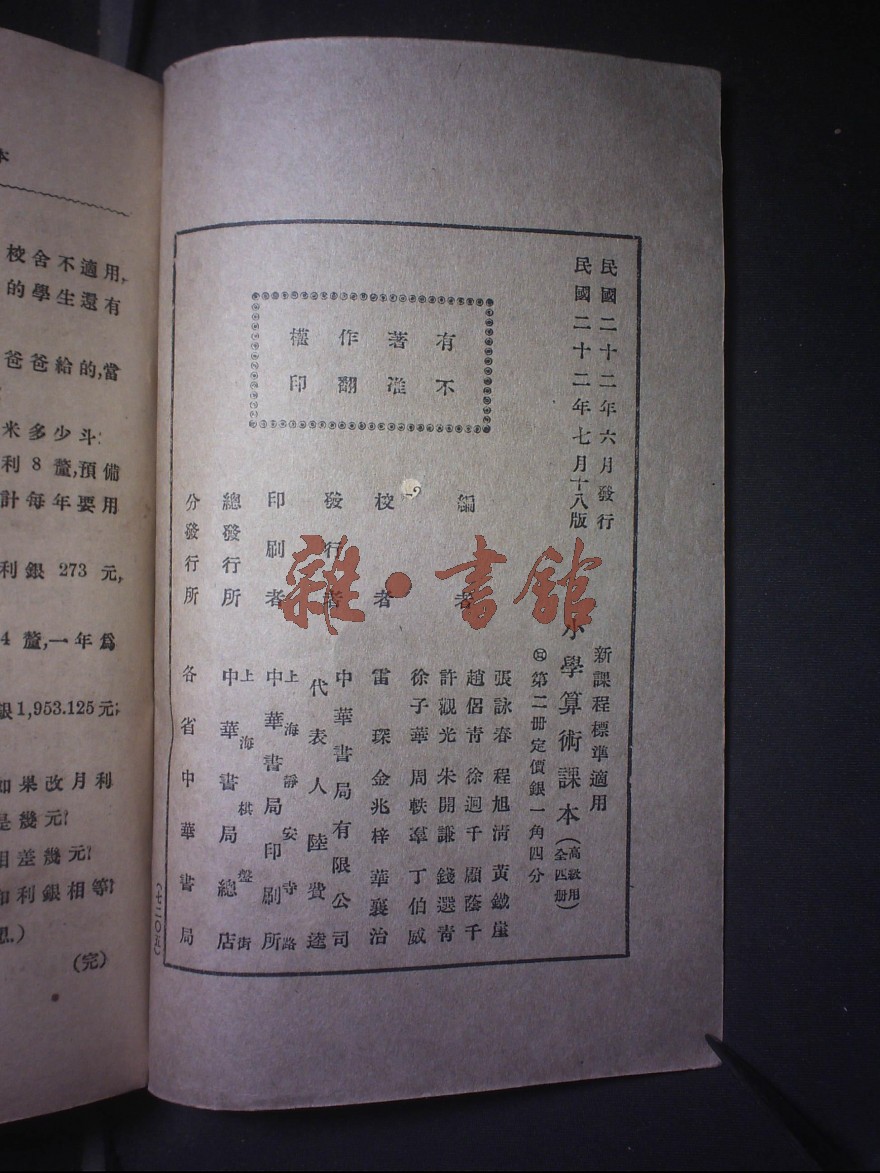 民國二十二年六月發行
民國二十二年七月十八版
新課程標準適用
小學算術課本(高級用全四冊)
第二冊定價銀一角四分
有著作權
不准翻印
編者
張詠春 程旭清 黃鐵崖
趙侶青 徐迥千 顧蔭千
許觀光 朱開謙 錢選青
徐子華 周軼羣 丁伯威
校者
雷琛 金兆梓 華襄治
發行者
中華書局有限公司
代表人 陸費逵
印刷者
上海靜安寺路
中華書局印刷所
總發行所
上海棋盤街
中華書局總店
分發行所
各省中華書局
(七二〇五)
雜·書館
本
校舍不適用,
的學生還有
爸爸給的,當
米多少斗?
利 8 釐,預備
計每年要用
利銀 273 元,
4 釐,一年爲
銀 1,953.125 元;
如果改月利
是幾元?
相差幾元?
和利銀相等?
思.)
(完)